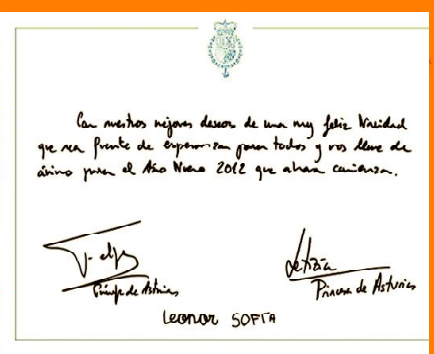 Con nuestros mejores deseos de una muy feliz Navidad
que sea fuente de esperanza para todos y nos llene de
ánimo para el Año Nuevo 2012 que ahora comienza.
Felipe
Letizia
Príncipe de Asturias
Princesa de Asturias
Leonor SOFÍA